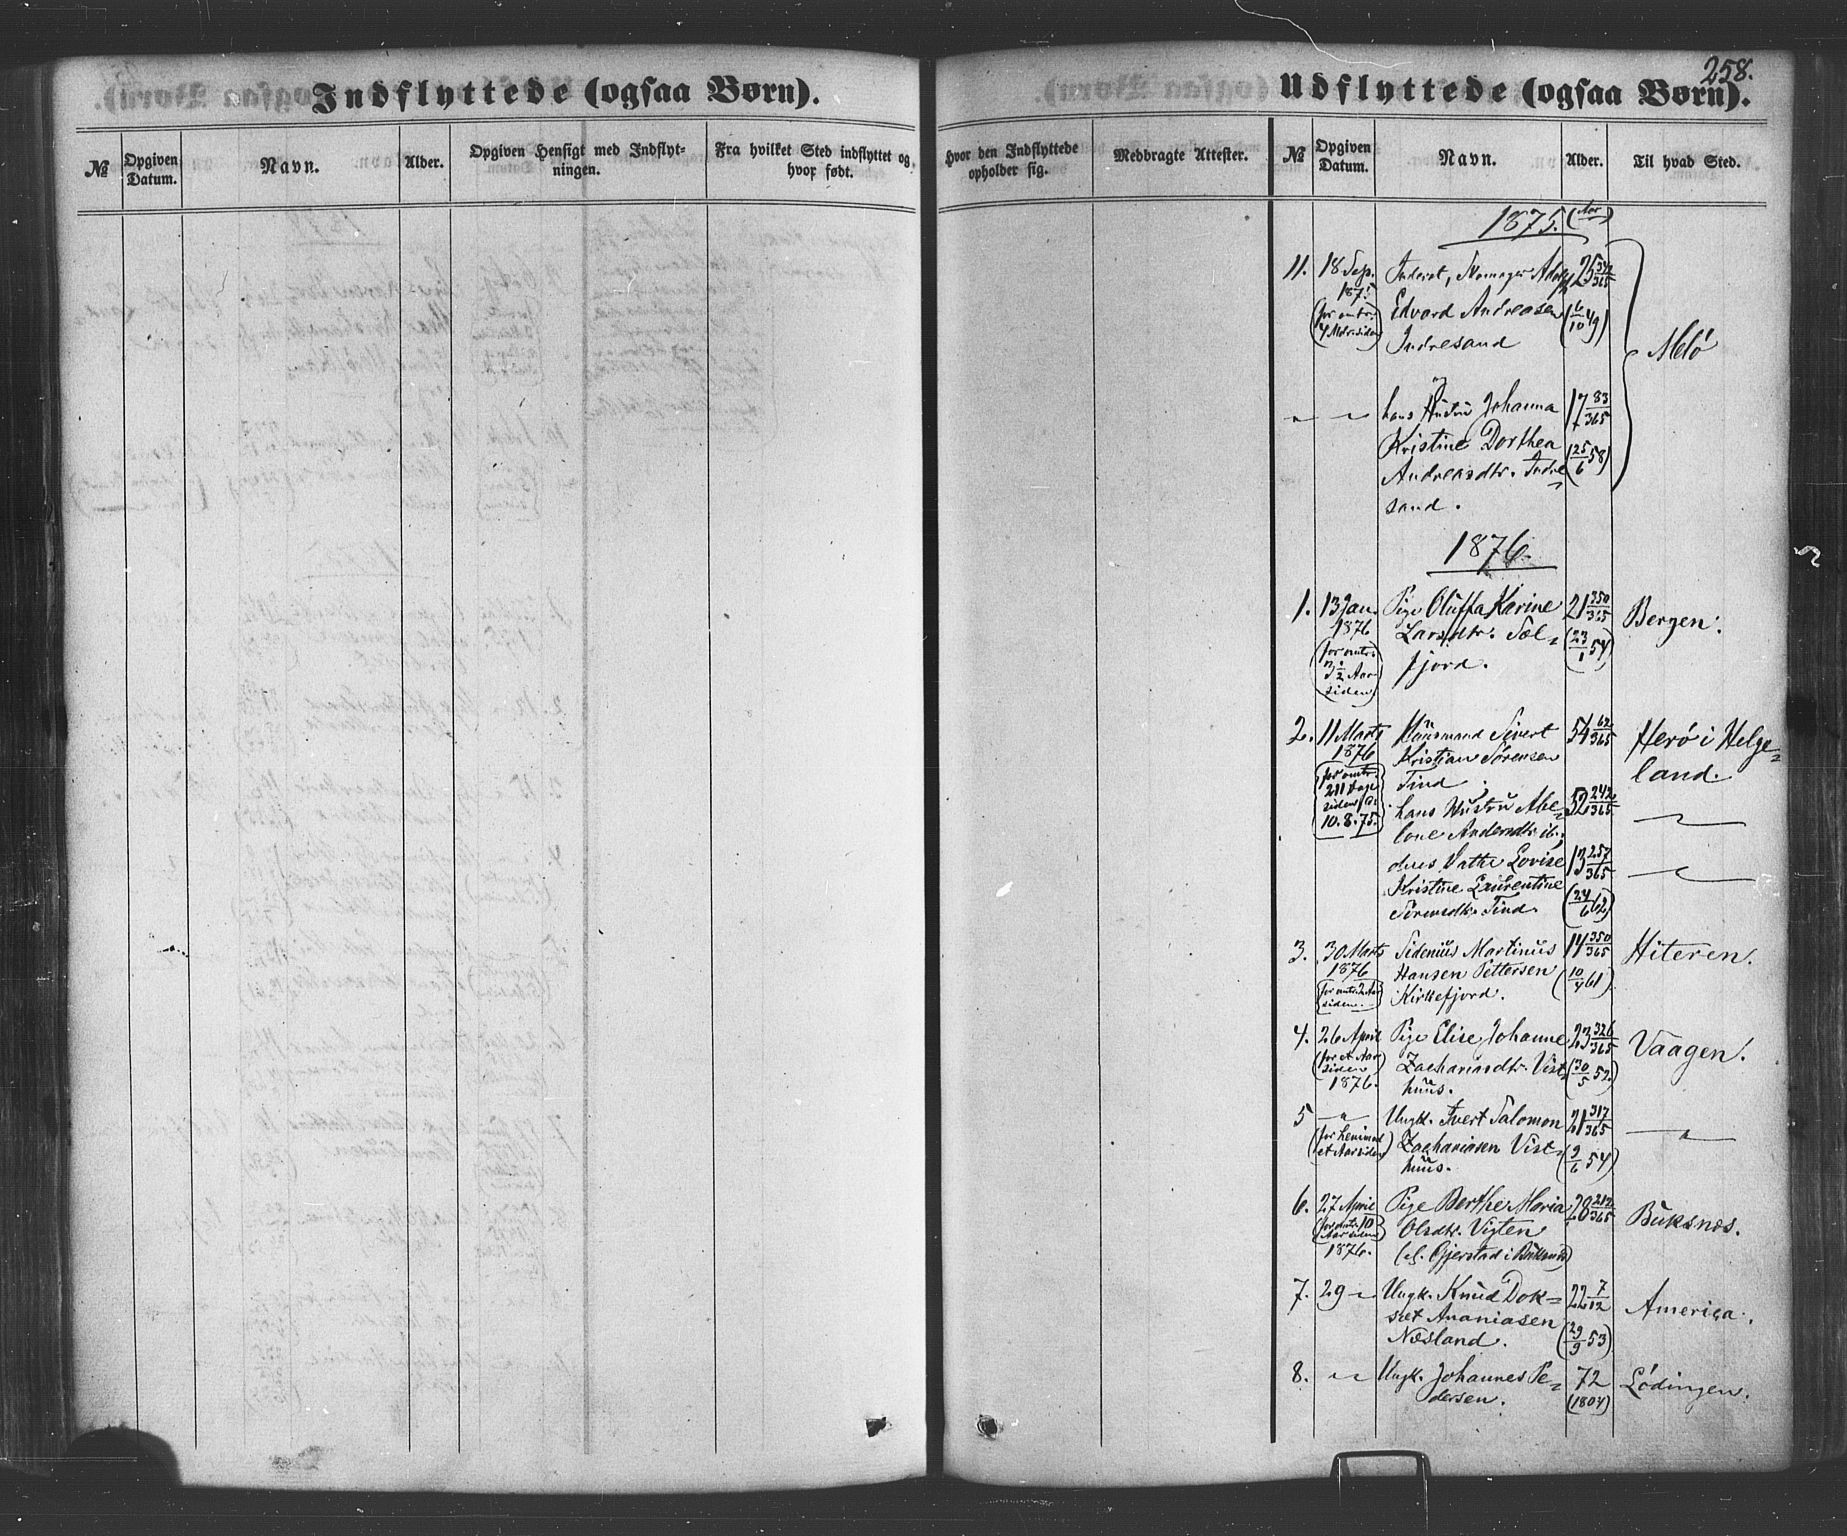 258.
Indflyttede (ogsaa Børn).
Udflyttede (ogsaa Børn).
No
Opgiven Datum.
Navn.
Alder.
Opgiven Hensigt med Indflytningen.
Fra hvilket Sted indflyttet og hvor født.
Hvor den Indflyttede opholder sig.
Medbragte Attester.
No
Opgiven Datum.
Navn.
Alder.
Til hvad Sted.
1875. (Aar)
11. 18 Sep. Inderst, Adolf 25 342/365
1875 Edvard Andreasen (6/10 49) Melö
(for omtr. 4 Mdr. siden) Indresand
og
" " hans Hustru Johanna 17 83/365
Kristine Dorthea (25/6 58)
Andreasdtr. Indre
sand.
1876.
1. 13 Jan. Pige Oluffa Karine 21 350/365 Bergen.
1876 Larsdtr. Sæl- (23/1 54)
(for omtr. 3 1/2 Aar siden) fjord.
2. 11 Marts Huusmand Sivert 54 62/365 Herö i Helge-
1876 Kristian Sörensen land.
(for omtr. 211 Dage siden Tind;
hans Hustru Abe- 52 242/365 "
10.8.75.) lone Andersdtr. ib.;
deres Datter Lovise 13 257/365 "
Kristine Laurentine
Sörensdtr. Tind. (24/6 62)
3. 30 Marts Sidenius Martinus 14 350/365 Hiteren.
1876 Hansen Pettersen (10/4 61)
(for omtr. 2 Aar siden.) Kirkefjord.
4. 26 April Pige Elise Johanne 23 326/365 Vaagen.
(for et Aar siden) Zachariasdtr. Vist- (30/5 52)
1876. huus.
5 " Ungk. Ivert Salomon 21 317/365 "
(for henimod et Aar siden) Zachariasen Vist- (9/6 54)
huus.
6. 27 April Pige Berthe Maria 28 212/365 Buksnæs.
(for omtr. 10 Aar siden) Olsdtr. Vigten
1876. (el. Gjerstad i Buksnæs)
7. 29 " Ungk. Knud Dok- 22 7/12 America.
sæt Ananiasen (29/9 53)
Næsland.
8. " Ungk. Johannes Pe- 72 Lödingen.
dersen. (1804)